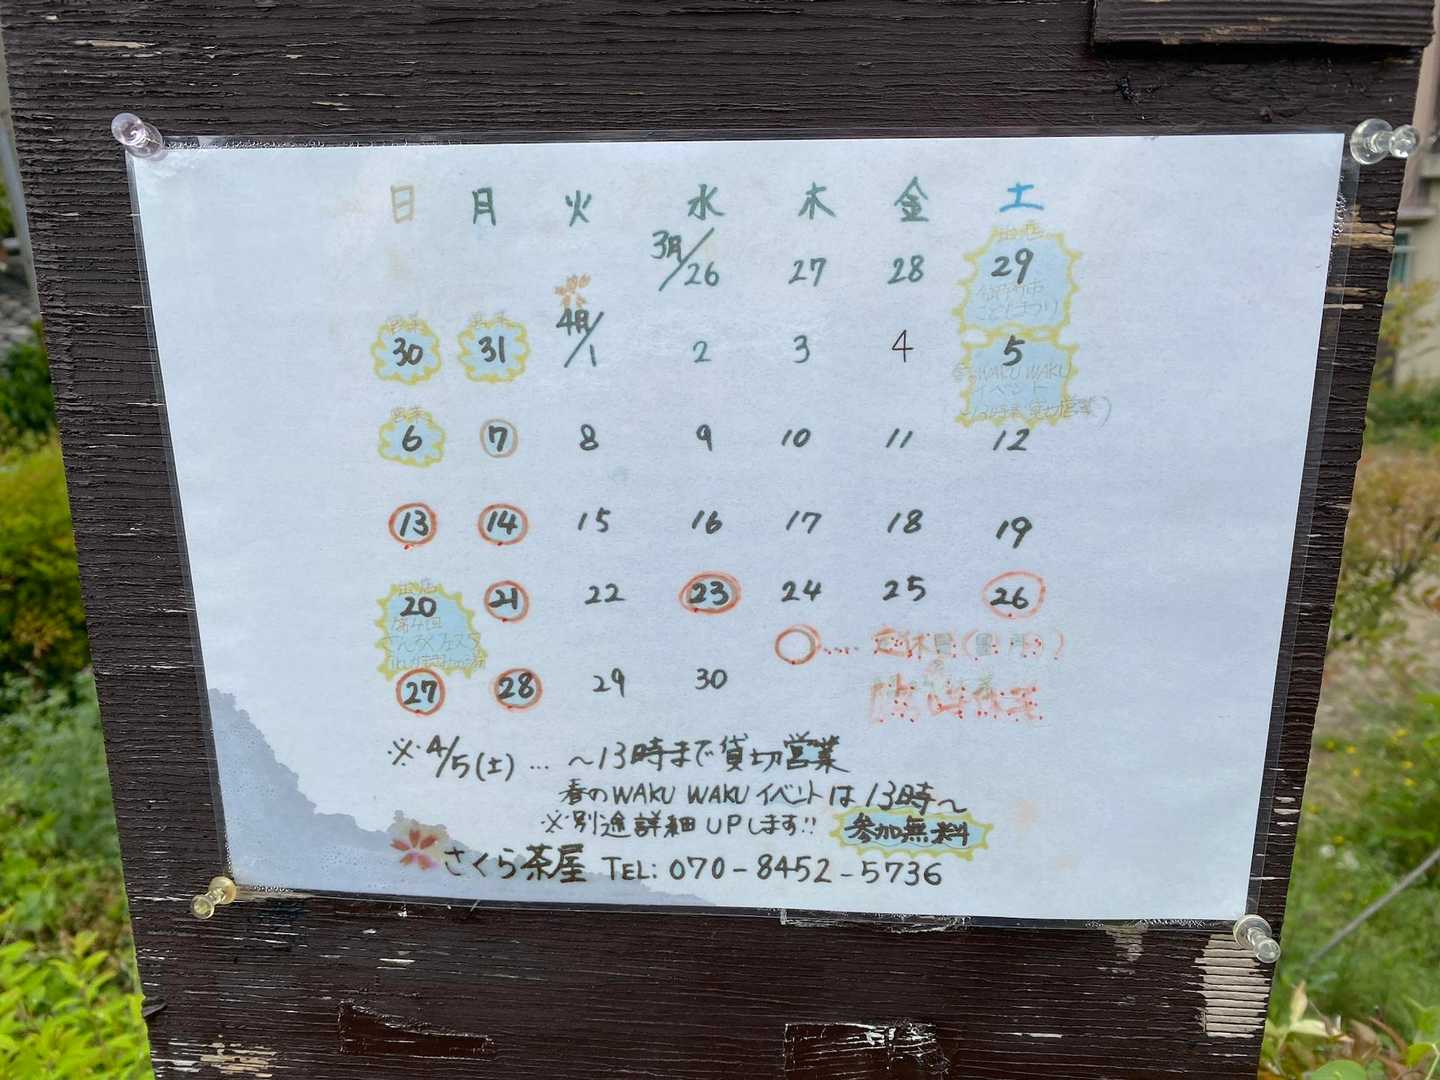 日 月 火 水 木 金 土
3月/26 27 28 出店 29
こどもまつり
営業 30 営業 31 4月/1 2 3 4 5
春のWAKU WAKU
イベント
営業 6 7 8 9 10 11 12
13 14 15 16 17 18 19
出店 20 21 22 23 24 25 26
第4回
○.... 定休日
27 28 29 30 臨時休業
※4/5(土)... ～13時まで貸切営業
春のWAKU WAKUイベントは13時～
※別途詳細UPします!! 参加無料
さくら茶屋 TEL: 070-8452-5736